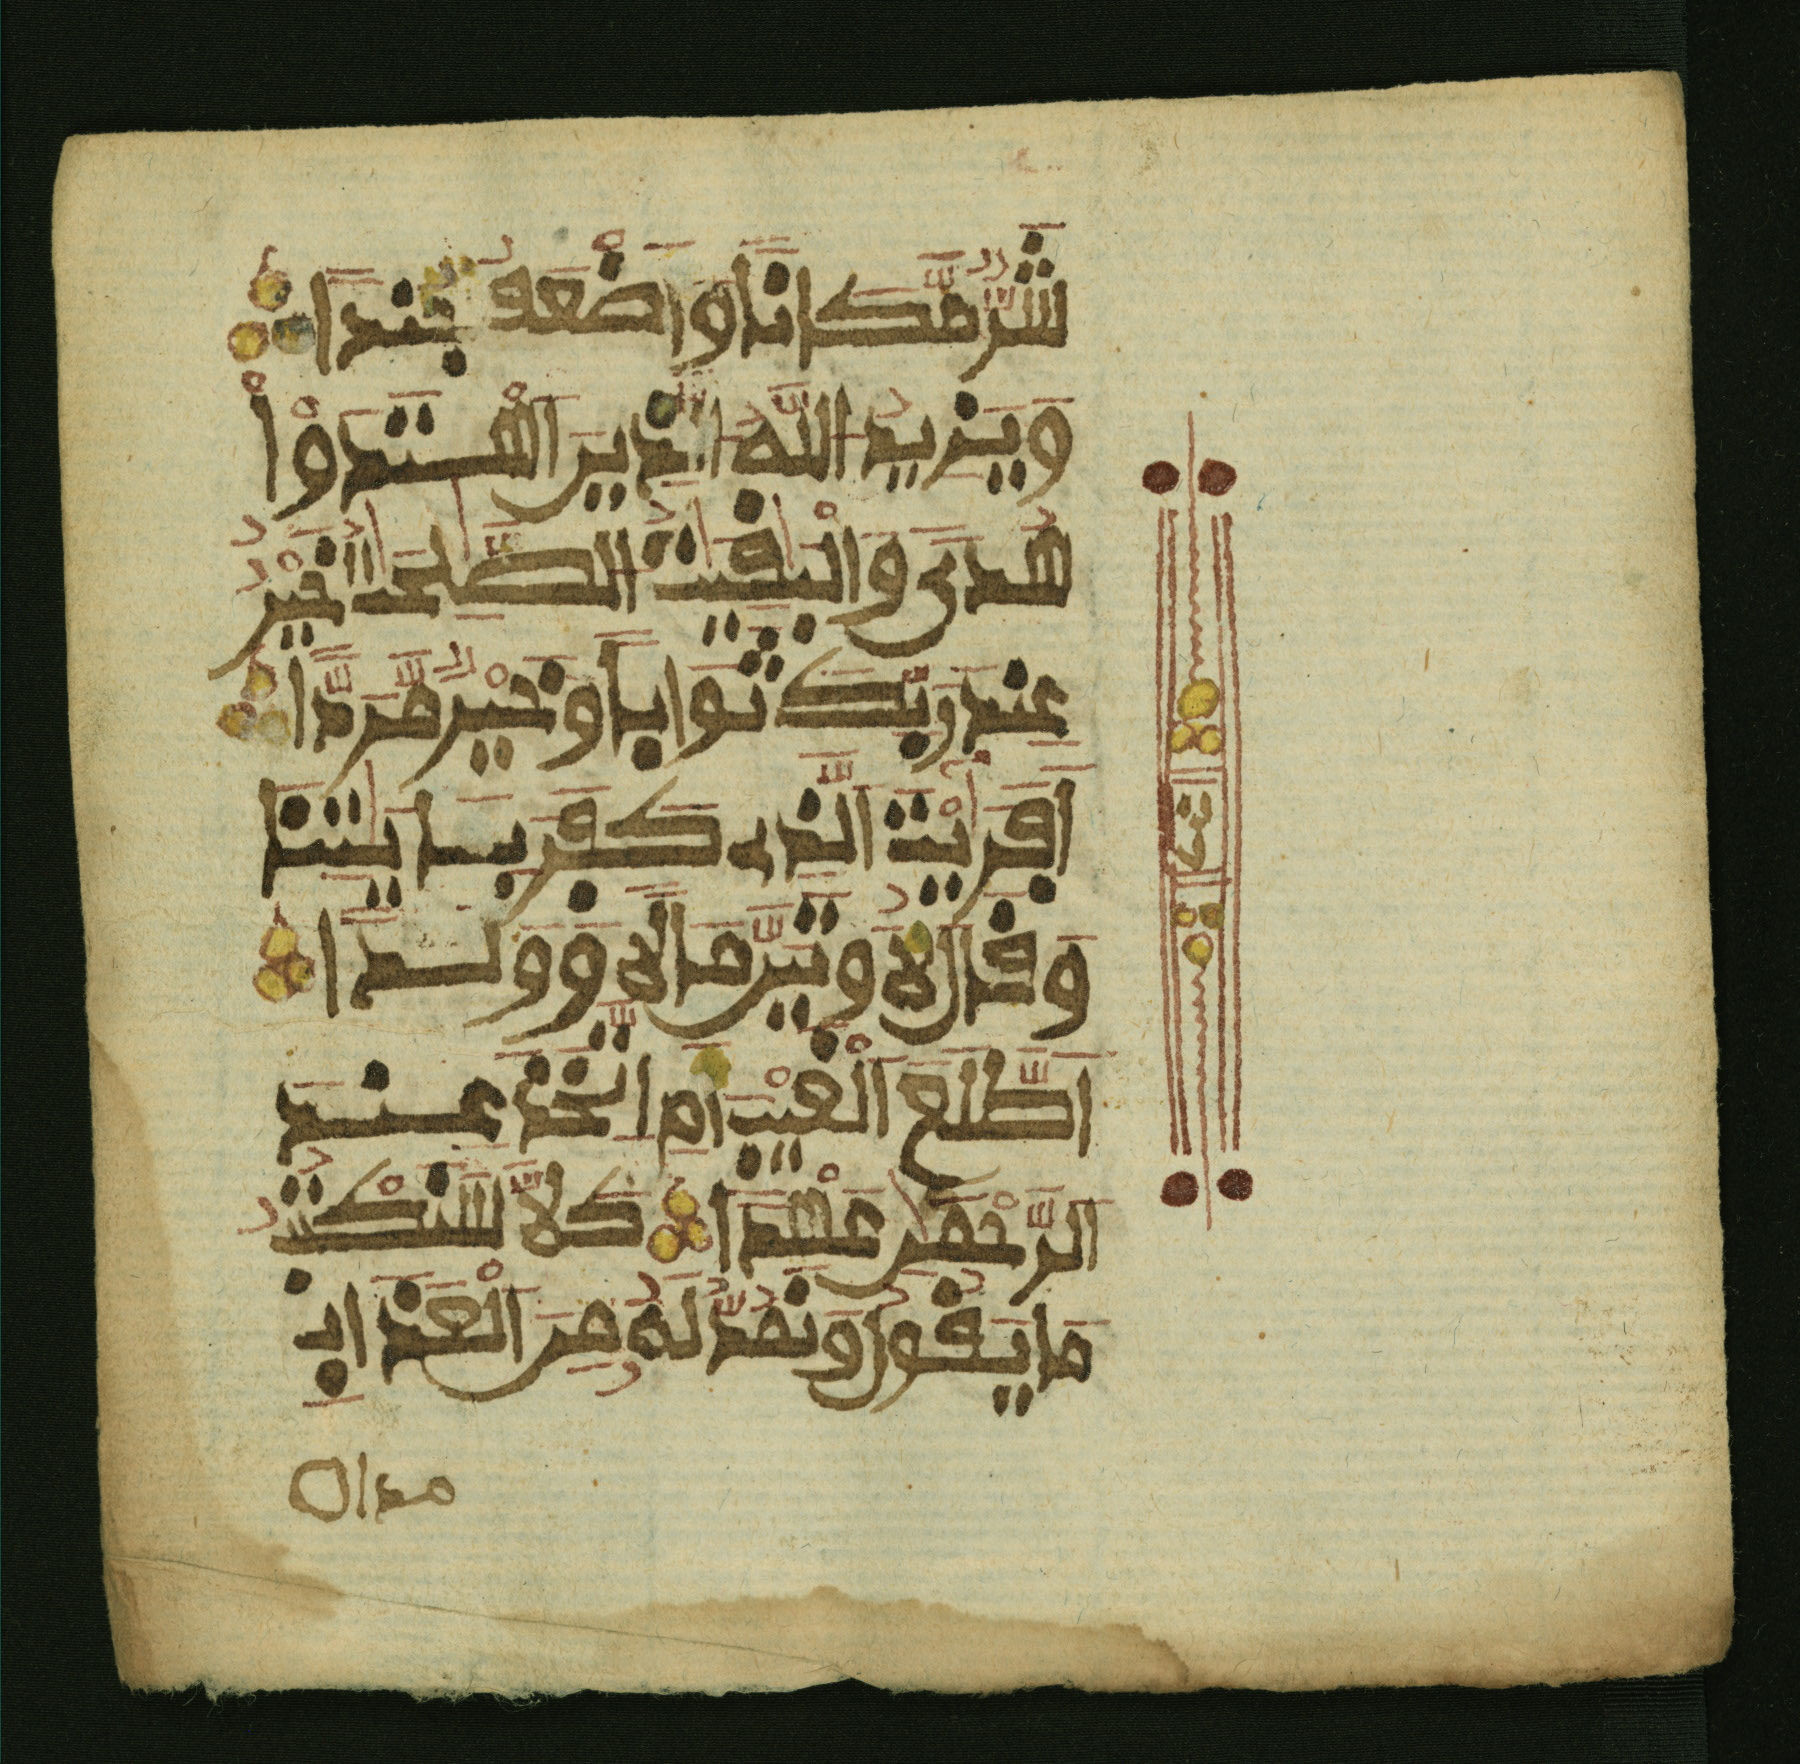 شَرٌّ مَّكَانًا وَأَضْعَفُ جُندًا
وَيَزِيدُ اللَّهُ الَّذِينَ اهْتَدَوْا
هُدًى وَالْبَٰقِيَٰتُ الصَّٰلِحَٰتُ خَيْرٌ
عِندَ رَبِّكَ ثَوَابًا وَخَيْرٌ مَّرَدًّا
أَفَرَٰيْتَ الَّذِى كَفَرَ بِـَٔايَٰتِنَا
وَقَالَ لَأُوتَيَنَّ مَالًا وَوَلَدًا
أَطَّلَعَ الْغَيْبَ أَمِ اتَّخَذَ عِندَ
الرَّحْمَٰنِ عَهْدًا كَلَّا سَنَكْتُبُ
مَا يَقُولُ وَنَمُدُّ لَهُ مِنَ الْعَذَابِ
مدا